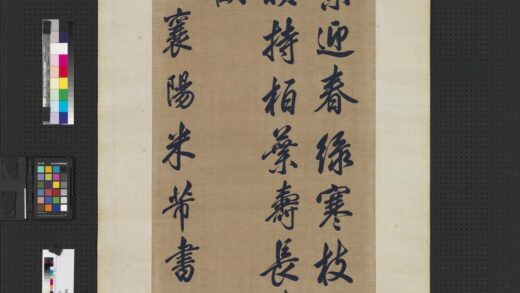 迎春綠寒枝
持柏葉壽長
襄陽米芾書